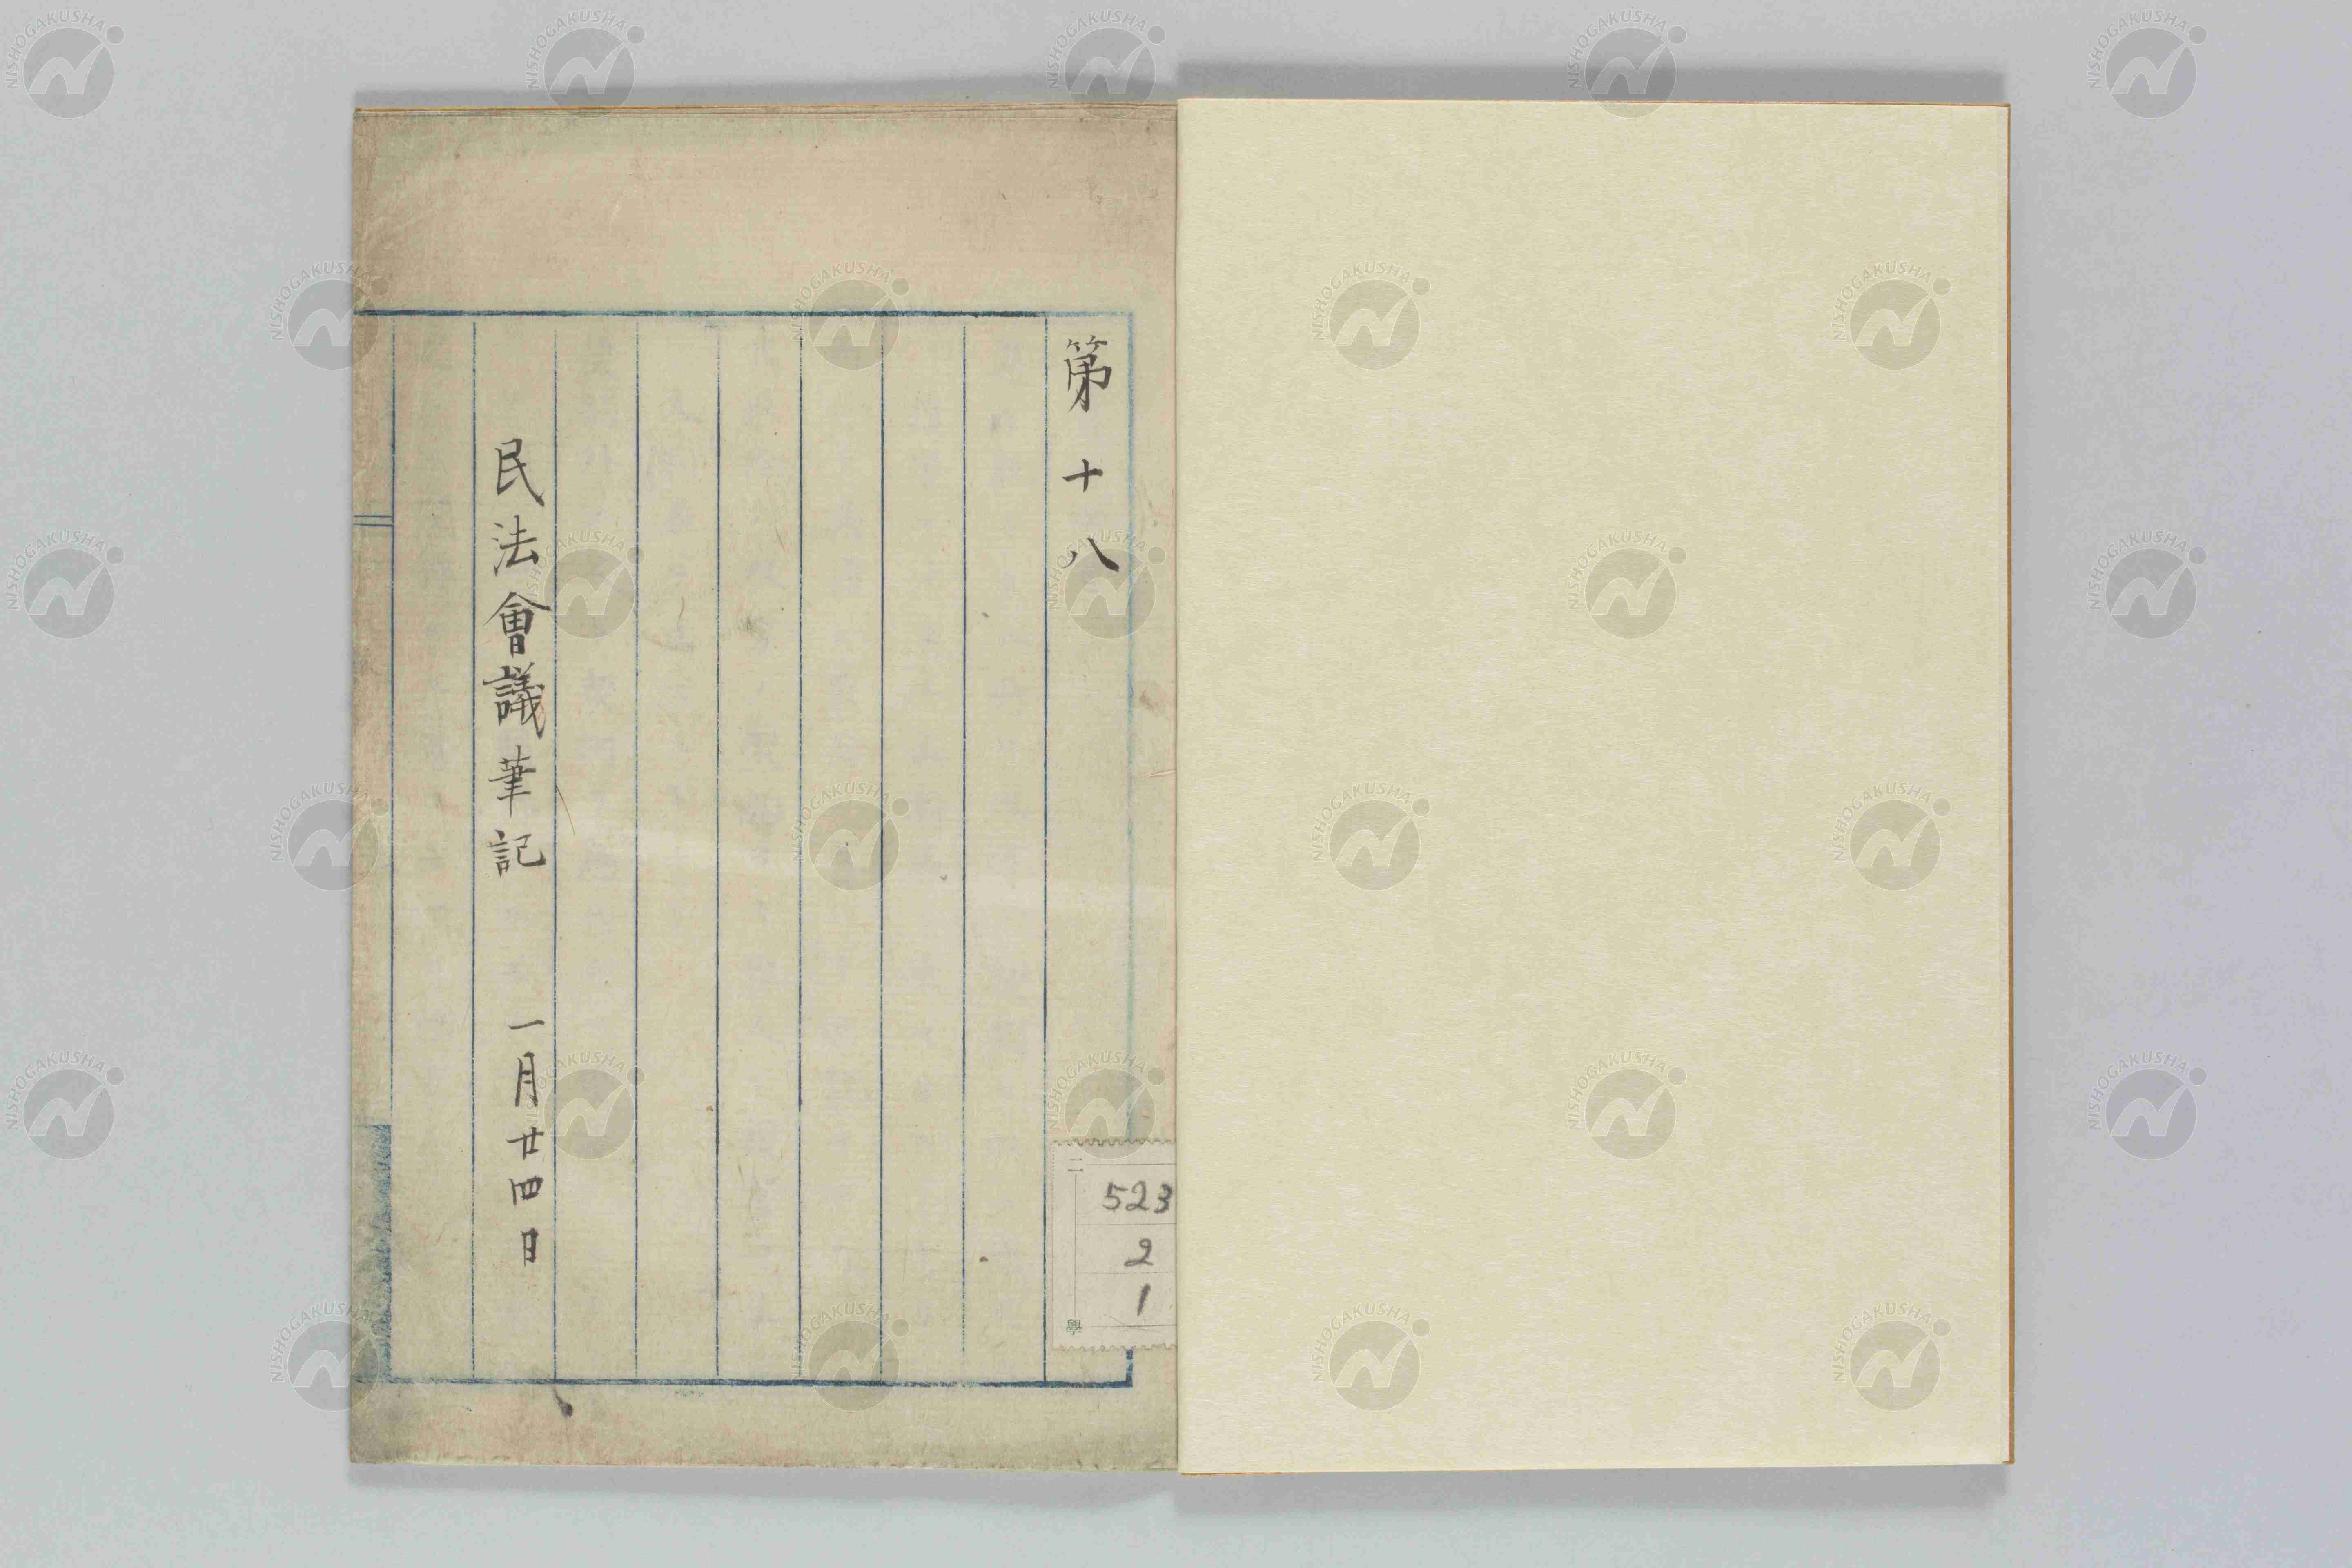 第十八
民法會議筆記 一月廿四日
二
523
2
1
NISHOGAKUSHA